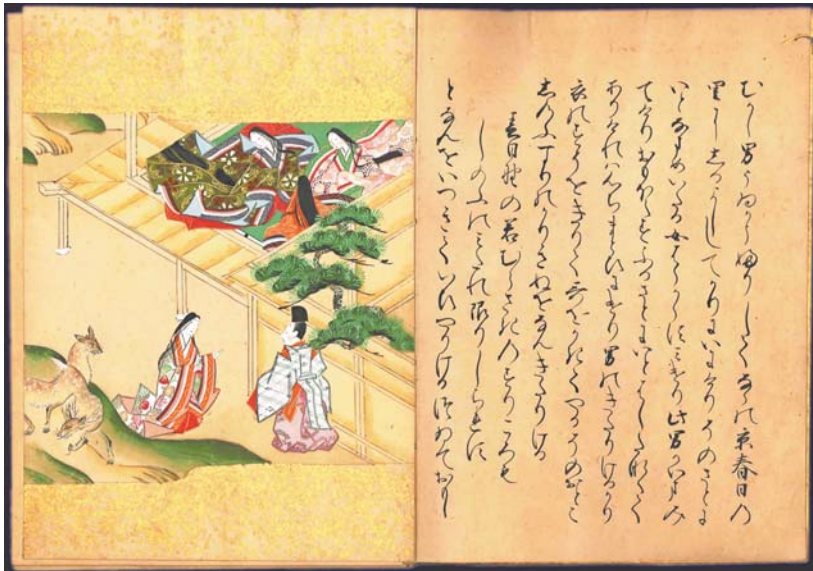 むかし男うゐかうふりしてならの京春日の
里にしるよししてかりにいにけりそのさとに
いとなまめいたる女はらからすみけり此男かいまみ
てけりおもほえすふるさとにいとはしたなくて
ありけれは心ちまとひにけり男のきたりけるかり
衣のすそをきりてうたをかきてやるそのおとこ
しのふすりのかりきぬをなんきたりける
春日野の若むらさきのすりころも
しのふのみたれ限りしられす
となんをいつきていひやりけるつゐておもし